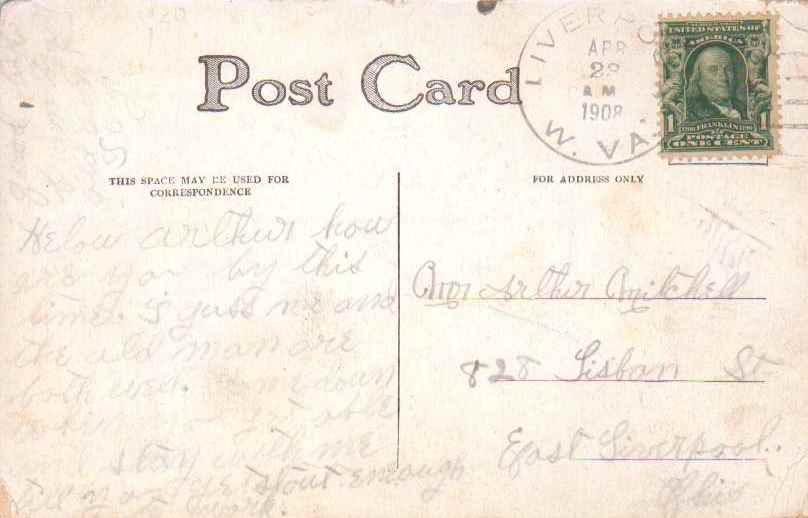 Post Card
LIVERPO
APR
29
AM
1908
W. VA.
UNITED STATES OF
AMERICA
1 1
FRANKLIN
POSTAGE
ONE CENT
THIS SPACE MAY BE USED FOR
CORRESPONDENCE
FOR ADDRESS ONLY
Helow Arthur how
are you by this
time. I gess me and
the old man are
both well. Come down
when you get able
stay with me
till you are stout enough
to work.
Mr Arthur Mitchell
828 Lisban St
East Liverpool.
Ohio